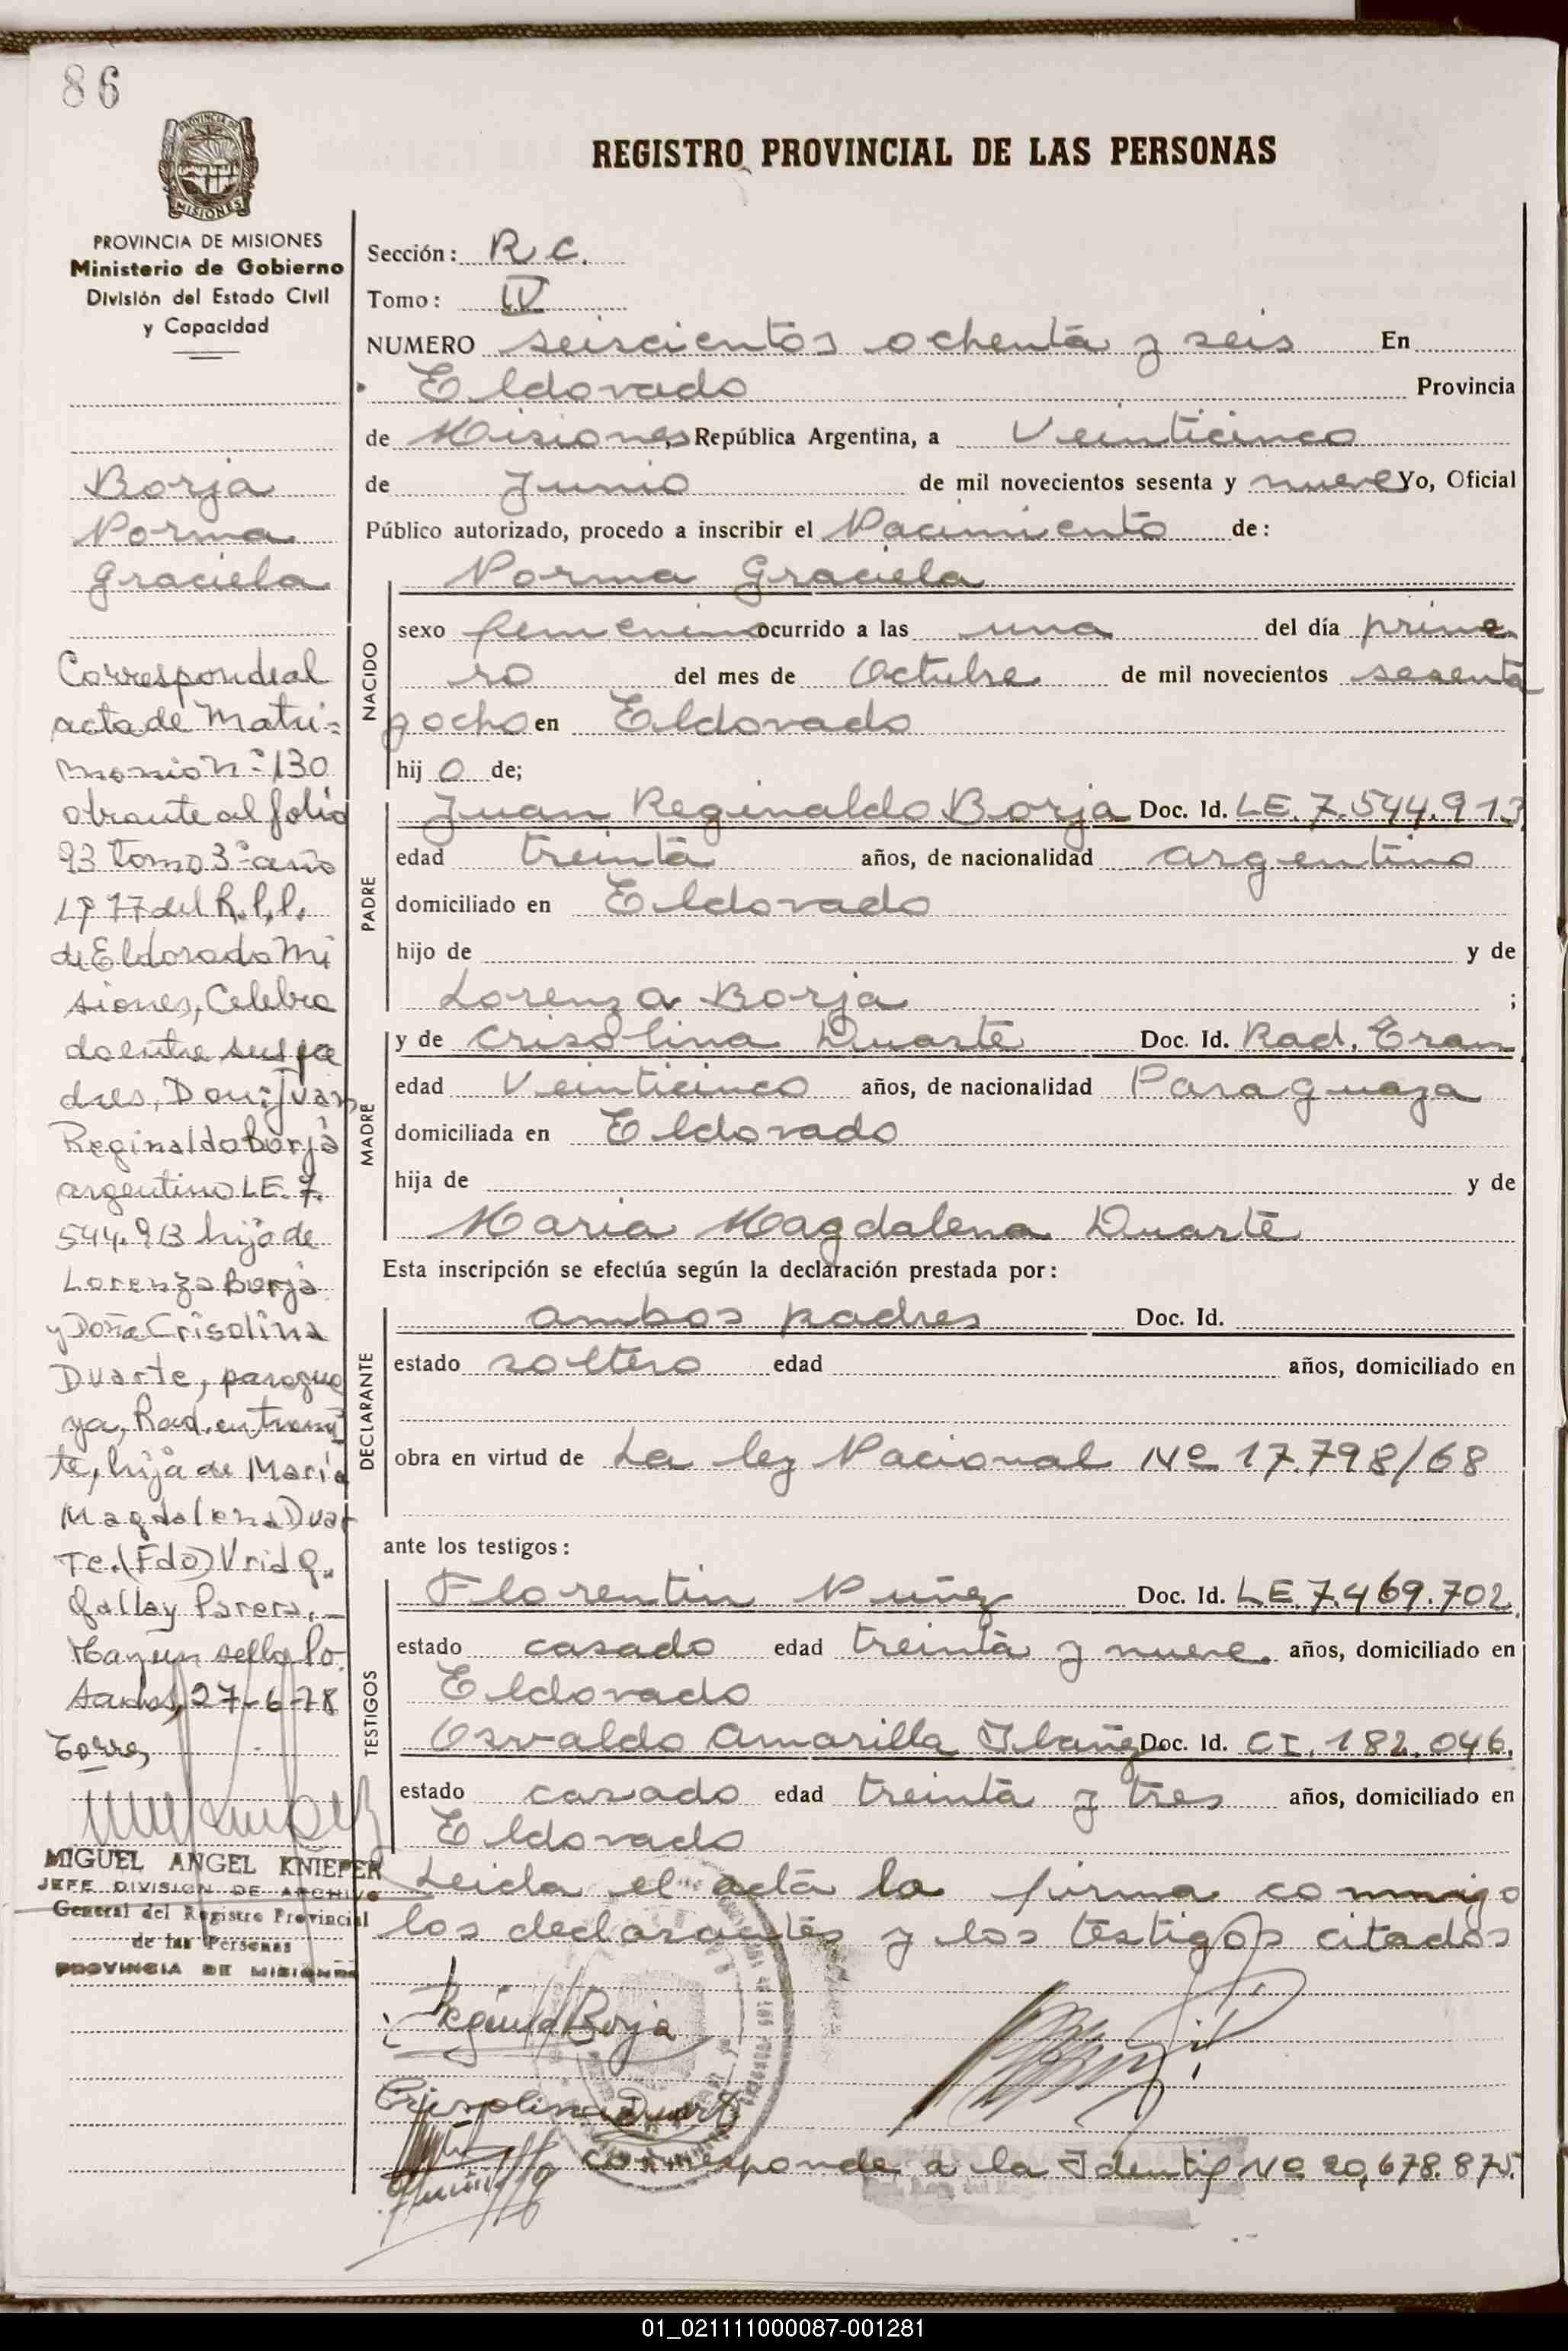 86
PROVINCIA DE MISIONES
REGISTRO PROVINCIAL DE LAS PERSONAS
PROVINCIA DE MISIONES
Ministerio de Gobierno
División del Estado Civil
y Capacidad
Borja
Norma
Graciela
Corresponde al
acta de Matri=
monio Nº 130
obrante al folio
93 tomo 3º año
1977 del R.P.P.
de Eldorado Mi
siones, Celebra
do entre sus pa
dres, Don: Juan
Reginaldo Borja
argentino LE. 7.
544.913 hijo de
Lorenza Borja
y Doña Crisolina
Duarte, paragua
ya, Rad. en trami
te, hija de Maria
Magdalena Duar
te. (Fdo) Vrid G.
Gallay Parera.-
Hay un sello. Po.
sadas, 27-6-78
Torres
MIGUEL ANGEL KNIEPER
JEFE DIVISION DE ARCHIVO
General del Registro Provincial
de las Personas
PROVINCIA DE MISIONES
Sección: R C.
Tomo: IV
NUMERO seiscientos ochenta y seis En
Eldorado Provincia
de Misiones República Argentina, a Veinticinco
de Junio de mil novecientos sesenta y nueve Yo, Oficial
Público autorizado, procedo a inscribir el Nacimiento de:
Norma Graciela
NACIDO
sexo femenino ocurrido a las una del día prime-
ro del mes de Octubre de mil novecientos sesenta
y ocho en Eldorado
hij o de;
PADRE
Juan Reginaldo Borja Doc. Id. LE. 7.544.913
edad treinta años, de nacionalidad argentino
domiciliado en Eldorado
hijo de y de
Lorenza Borja ;
MADRE
y de Crisolina Duarte Doc. Id. Rad. Tram
edad Veinticinco años, de nacionalidad Paraguaya
domiciliada en Eldorado
hija de y de
Maria Magdalena Duarte
Esta inscripción se efectúa según la declaración prestada por:
DECLARANTE
ambos padres Doc. Id.
estado soltero edad años, domiciliado en
obra en virtud de La ley Nacional Nº 17.798/68
ante los testigos:
TESTIGOS
Florentin Nuñez Doc. Id. LE 7.469.702.
estado casado edad treinta y nueve años, domiciliado en
Eldorado
Osvaldo Amarilla Ibañez Doc. Id. CI. 182.046.
estado casado edad treinta y tres años, domiciliado en
Eldorado
Leida el acta la firma conmigo
los declarantes y los testigos citados
Reginaldo Borja
Crisolina Duarte
corresponde a la Identif Nº 20,678.875.
01_021111000087-001281